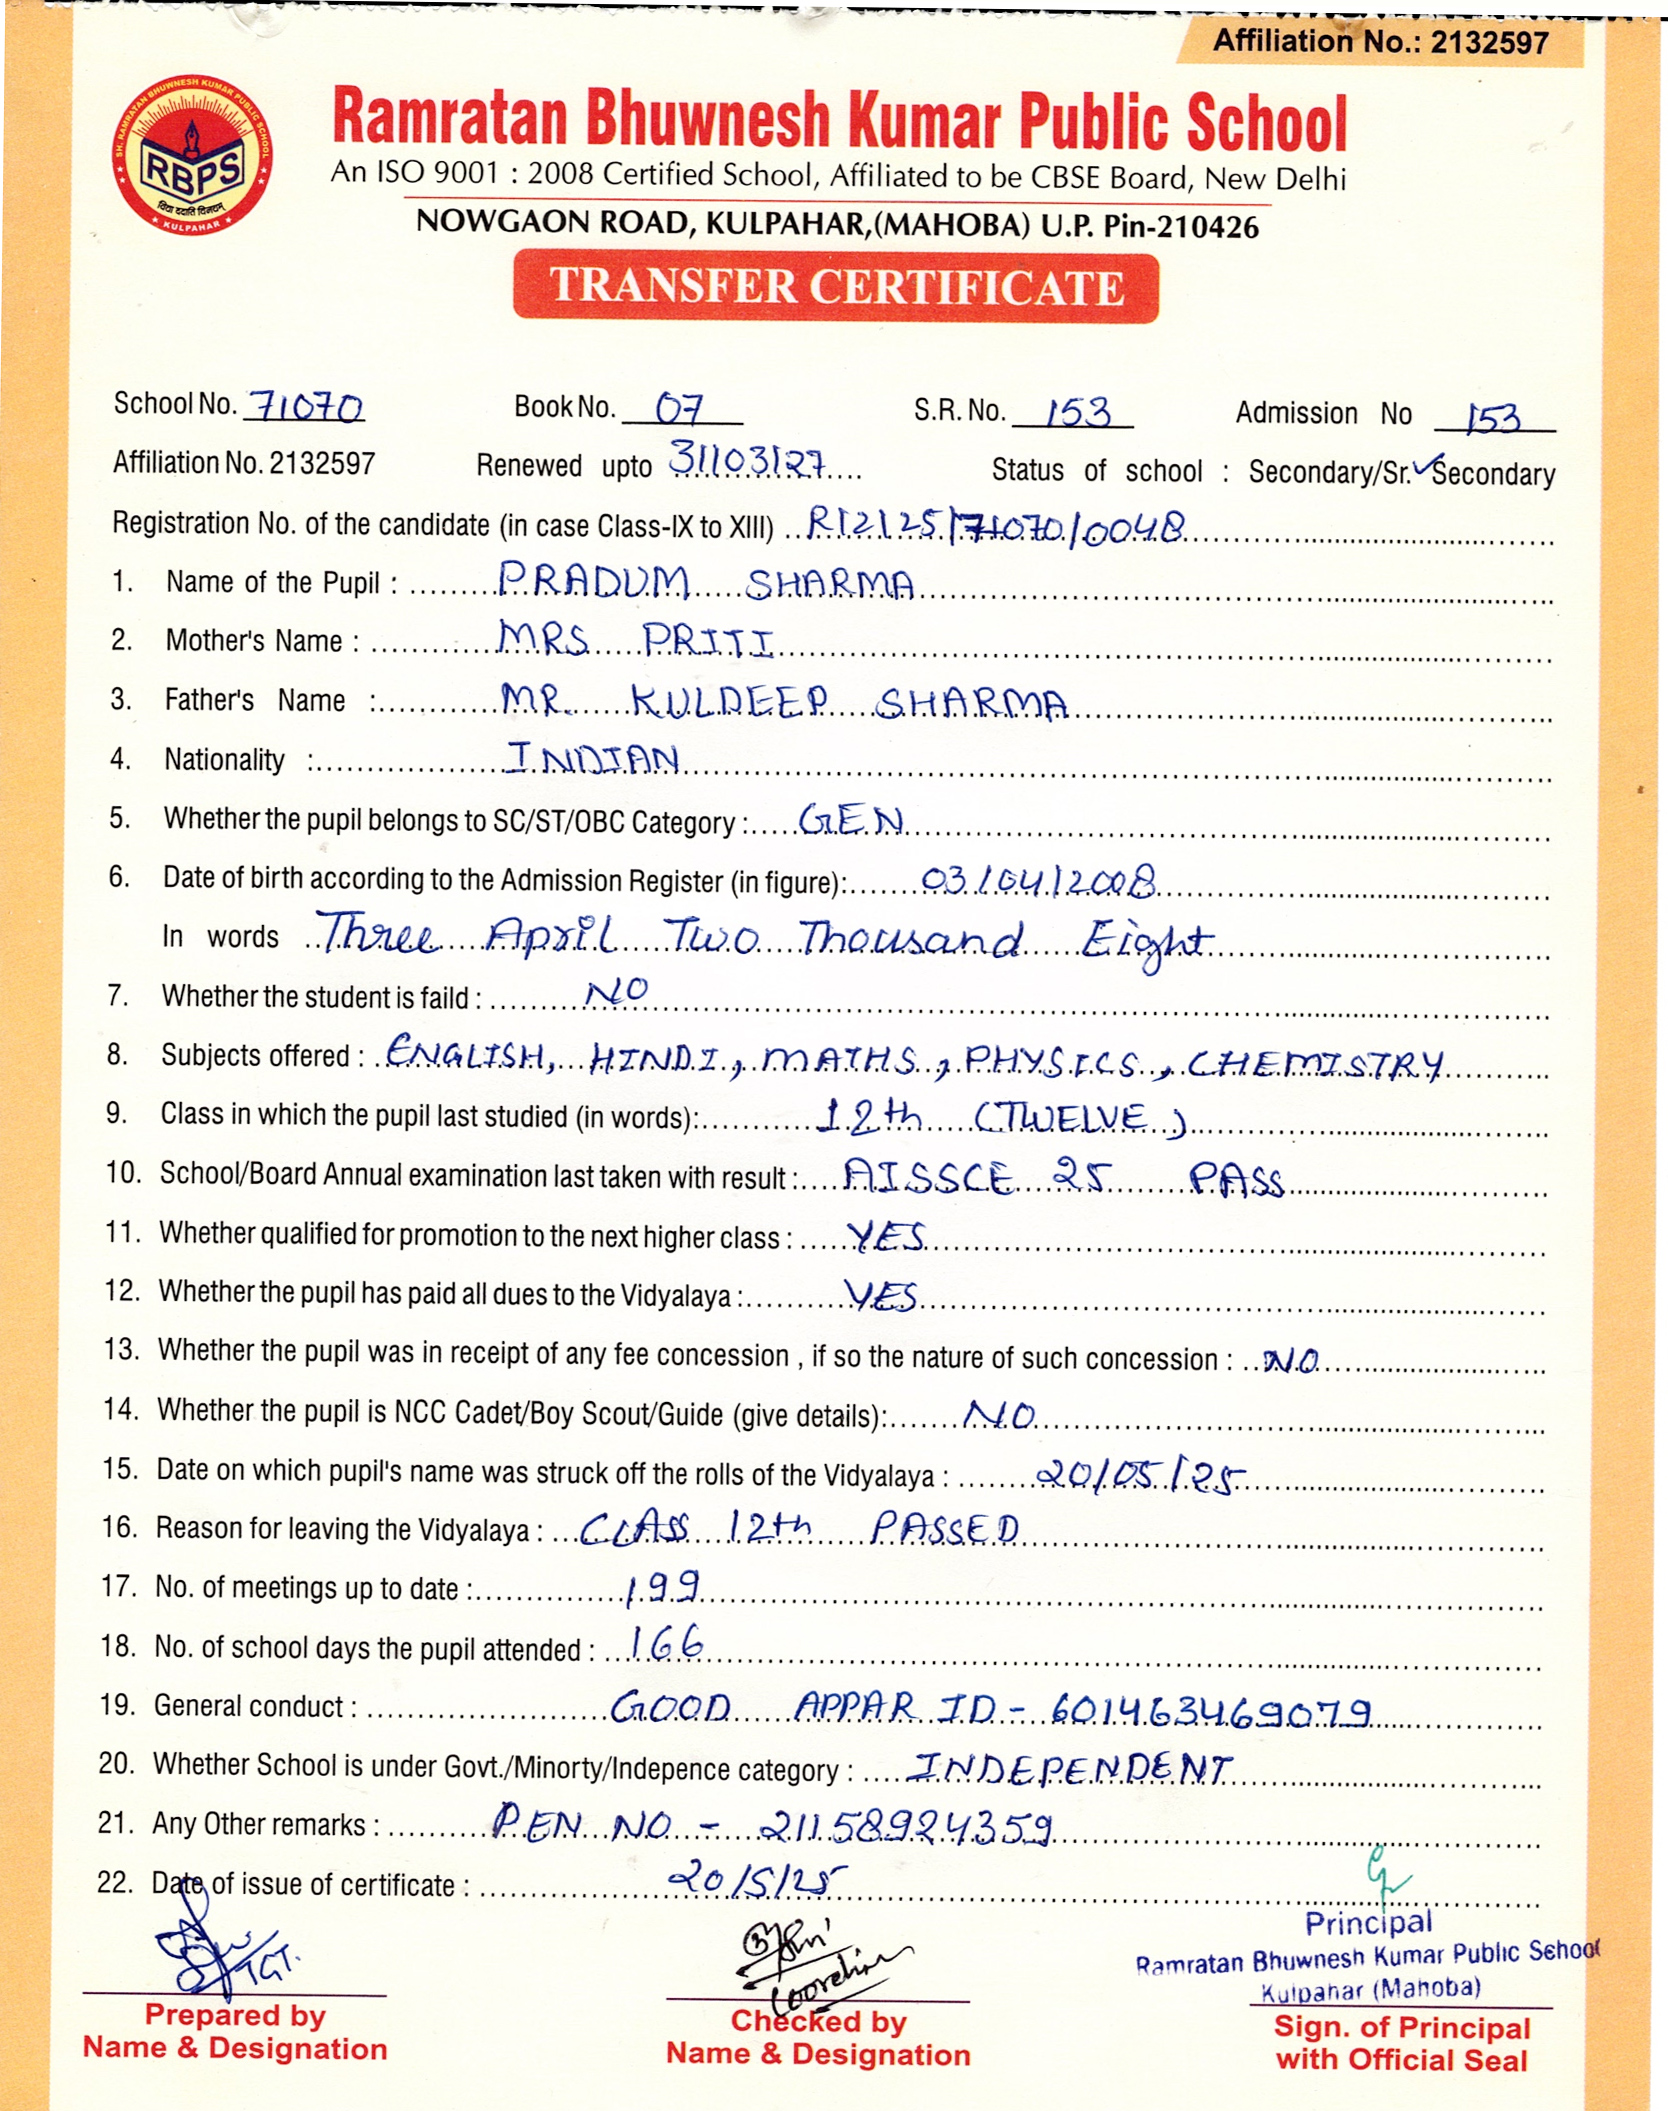 Affiliation No.: 2132597
SH. RAMRATAN BHUWNESH KUMAR PUBLIC SCHOOL
RBPS
विद्या ददाति विनयम्
KULPAHAR
Ramratan Bhuwnesh Kumar Public School
An ISO 9001 : 2008 Certified School, Affiliated to be CBSE Board, New Delhi
NOWGAON ROAD, KULPAHAR,(MAHOBA) U.P. Pin-210426
TRANSFER CERTIFICATE
School No. 71070 Book No. 07 S.R. No. 153 Admission No 153
Affiliation No. 2132597 Renewed upto 31/03/27 Status of school : Secondary/Sr. ✓Secondary
Registration No. of the candidate (in case Class-IX to XIII) R/2/25/71070/0048
1. Name of the Pupil : PRADUM SHARMA
2. Mother's Name : MRS PRITI
3. Father's Name : MR. KULDEEP SHARMA
4. Nationality : INDIAN
5. Whether the pupil belongs to SC/ST/OBC Category : GEN
6. Date of birth according to the Admission Register (in figure): 03/04/2008
In words Three April Two Thousand Eight
7. Whether the student is faild : NO
8. Subjects offered : ENGLISH, HINDI, MATHS, PHYSICS, CHEMISTRY
9. Class in which the pupil last studied (in words): 12th (TWELVE)
10. School/Board Annual examination last taken with result : AISSCE 25 PASS
11. Whether qualified for promotion to the next higher class : YES
12. Whether the pupil has paid all dues to the Vidyalaya : YES
13. Whether the pupil was in receipt of any fee concession , if so the nature of such concession : NO
14. Whether the pupil is NCC Cadet/Boy Scout/Guide (give details): NO
15. Date on which pupil's name was struck off the rolls of the Vidyalaya : 20/05/25
16. Reason for leaving the Vidyalaya : CLASS 12th PASSED
17. No. of meetings up to date : 199
18. No. of school days the pupil attended : 166
19. General conduct : GOOD APPAR ID - 601463469079
20. Whether School is under Govt./Minorty/Indepence category : INDEPENDENT
21. Any Other remarks : PEN NO - 21158924359
22. Date of issue of certificate : 20/5/25
TGT.
Principal
Ramratan Bhuwnesh Kumar Public School
Kulpahar (Mahoba)
Prepared by
Name & Designation
Checked by
Name & Designation
Sign. of Principal
with Official Seal